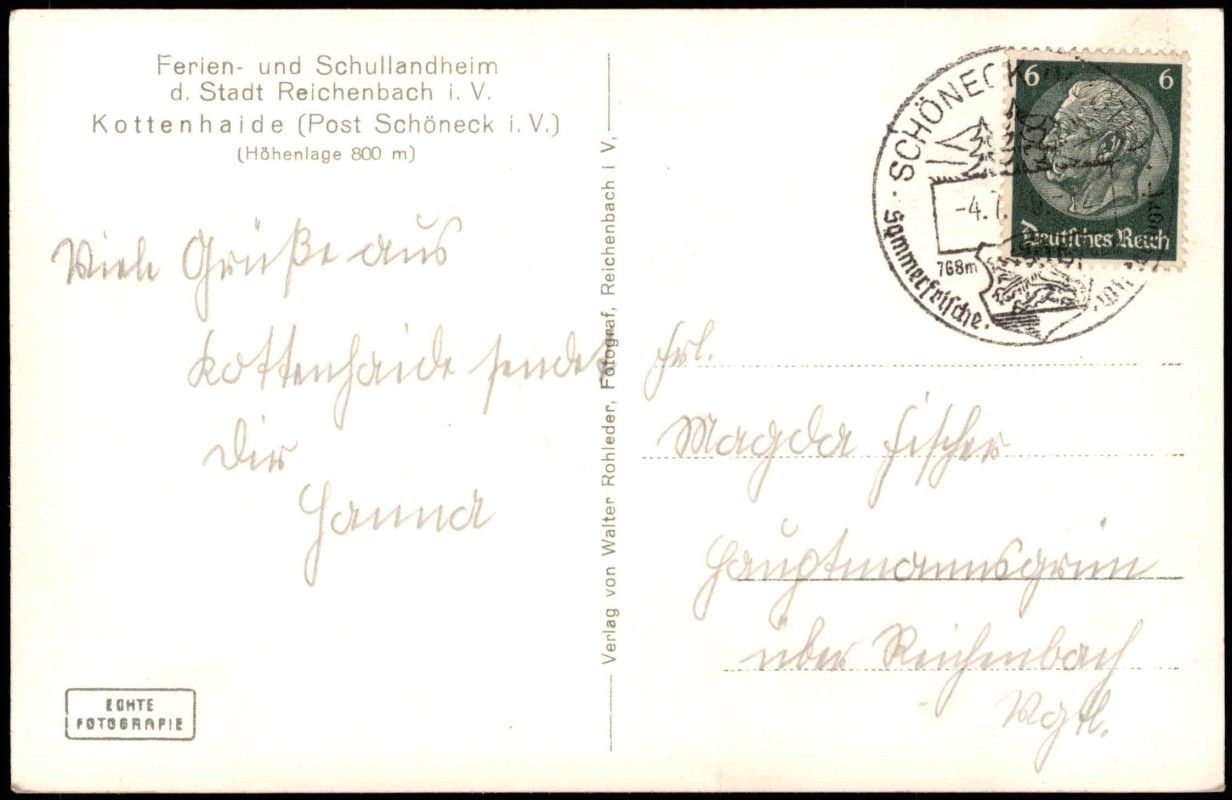 Ferien- und Schullandheim
d. Stadt Reichenbach i. V.
Kottenhaide (Post Schöneck i. V.)
(Höhenlage 800 m)
Viele Grüße aus
Kottenhaide sendet
Dir
Hanna
ECHTE
FOTOGRAFIE
Verlag von Walter Rohleder, Fotograf, Reichenbach i V,
SCHÖNECK
-4.7.
768m
Sommerfrische
6 6
Deutsches Reich
Frl.
Magda Fischer
Hauptmannsgrün
über Reichenbach
Vgtl.